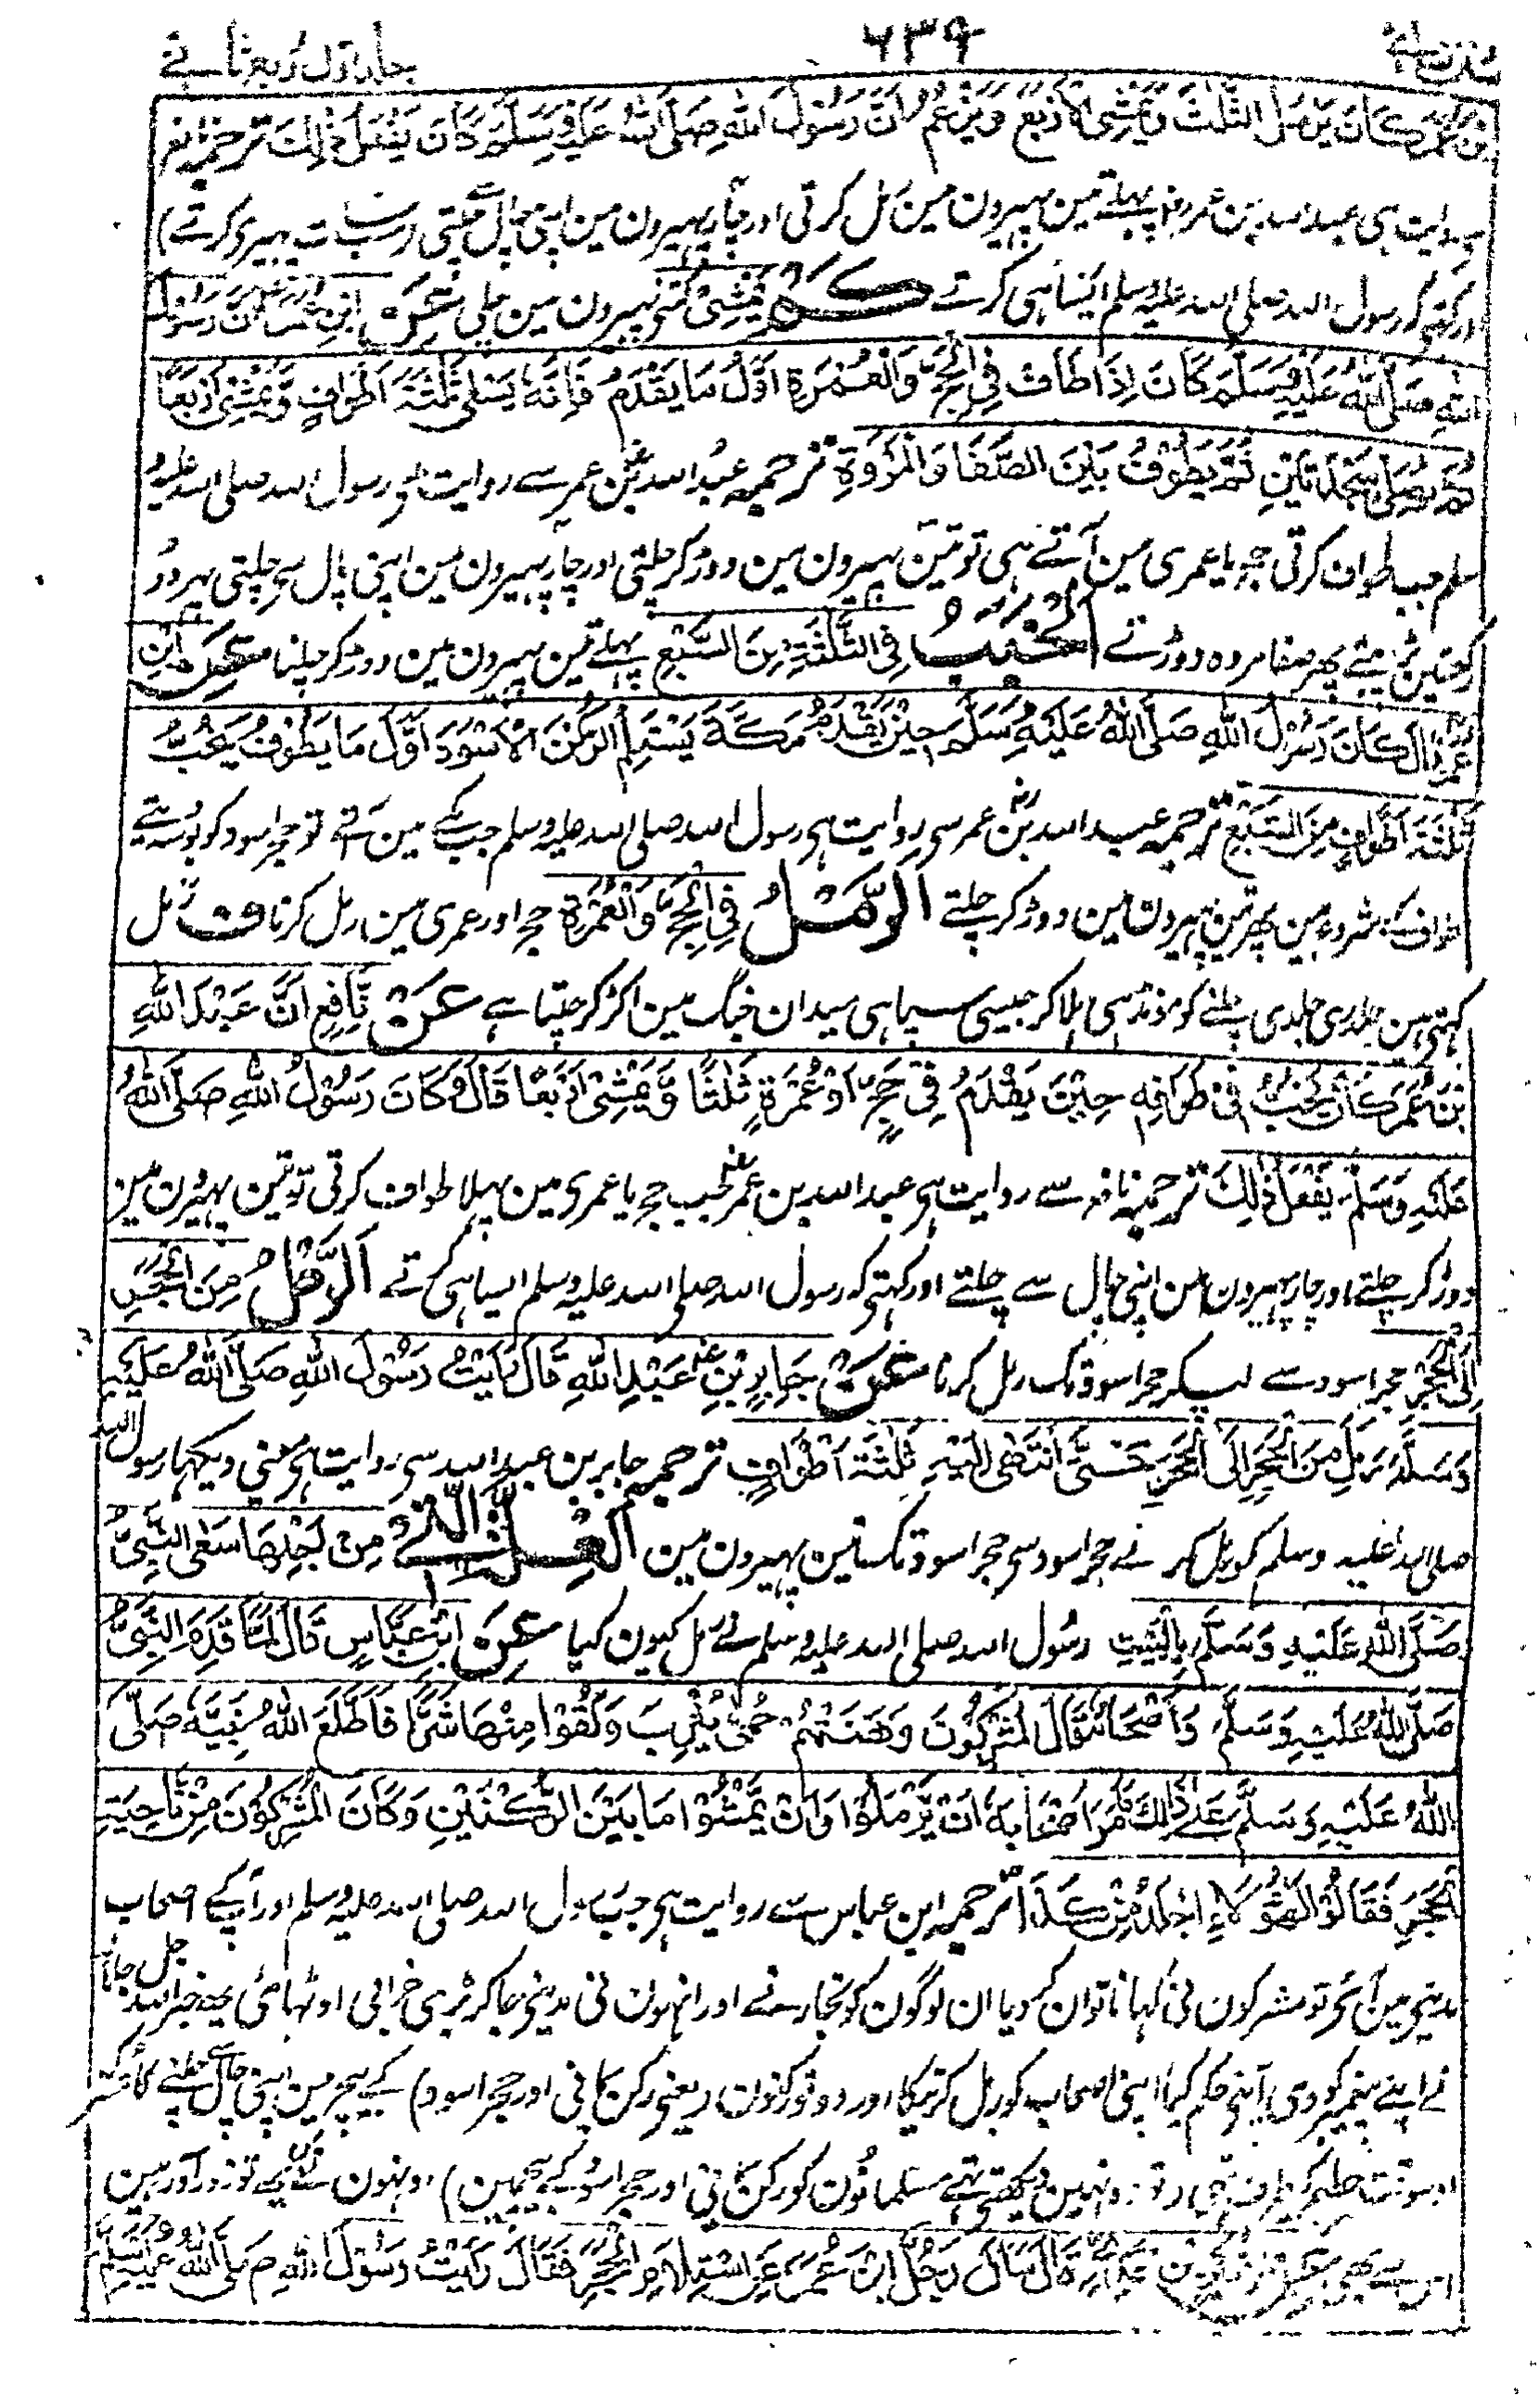 سنن نسائی ۶۳۹ جلد اول ربع ثانے
بن عمر كان يرمل الثلث ويمشي الاربع ويزعم ان رسول الله صلى الله عليه وسلم كان يفعل ذلك ترجمہ نافع
سے روایت ہی عبد اللہ بن عمر پہلے تین پہیرون مین رمل کرتی اور چار پہیرون مین اپنی چال چلتی (سب سات پہیری کرتے)
اور کہتی کہ رسول اللہ صلی اللہ علیہ وسلم ایسا ہی کرتے كم يمشي کتنی پہیرون مین چلی عن ابن عمر ان رسول
الله صلى الله عليه وسلم كان اذا طاف في الحج والعمرة اول ما يقدم فانه يسعى ثلثة اطواف ويمشي اربعا
ثم يصلي سجدتين ثم يطوف بين الصفا والمروة ترجمہ عبد اللہ بن عمر سے روایت ہی رسول اللہ صلی اللہ علیہ و
سلم جب طواف کرتی حج یا عمری مین آتے ہی تو تین پہیرون مین دوڑ کر چلتی اور چار پہیرون مین اپنی چال سی چلتی پہر دو
رکعتین پڑہتے پہر صفا مروہ دوڑتے الخبب في الثلثة من السبع پہلے تین پہیرون مین دوڑ کر چلنا عن ابن
عمر قال كان رسول الله صلى الله عليه وسلم حين يقدم مكة يستلم الركن الاسود اول ما يطوف يخب
ثلثة اطواف من السبع ترجمہ عبد اللہ بن عمر سی روایت ہی رسول اللہ صلی اللہ علیہ وسلم جب مکے مین آتے تو حجر اسود کو بوسہ دیتے
طواف کے شروع مین پہر تین پہیرون مین دوڑ کر چلتے الرمل في الحج والعمرة حج اور عمری مین رمل کرنا ف رمل
کہتی ہین جلدی جلدی چلنے کو مونڈہی ہلا کر جیسی سپاہی میدان جنگ مین اکڑ کر چلتا ہے عن نافع ان عبد الله
بن عمر كان يخب في طوافه حين يقدم في حج او عمرة ثلثا ويمشي اربعا قال وكان رسول الله صلى الله
عليه وسلم يفعل ذلك ترجمہ نافع سے روایت ہی عبد اللہ بن عمر جب حج یا عمری مین پہلا طواف کرتی تو تین پہیرون مین
دوڑ کر چلتے اور چار پہیرون مین اپنی چال سے چلتے اور کہتی کہ رسول اللہ صلی اللہ علیہ وسلم ایسا ہی کرتے الرمل من الحجر
الى الحجر حجر اسود سے لیکر حجر اسود تک رمل کرنا عن جابر بن عبد الله قال رايت رسول الله صلى الله عليه
وسلم رمل من الحجر الى الحجر حتى انتهى اليه ثلثة اطواف ترجمہ جابر بن عبد اللہ سی روایت ہی مینی دیکہا رسول اللہ
صلی اللہ علیہ وسلم کو رمل کرتے حجر اسود سی حجر اسود تک تین پہیرون مین العلة التي من اجلها سعى النبي
صلى الله عليه وسلم بالبيت رسول اللہ صلی اللہ علیہ وسلم نے رمل کیون کیا عن ابن عباس قال لما قدم النبي
صلى الله عليه وسلم واصحابه قال المشركون وهنتهم حمى يثرب ولقوا منها شرا فاطلع الله نبيه صلى
الله عليه وسلم على ذلك فامر اصحابه ان يرملوا وان يمشوا ما بين الركنين وكان المشركون من ناحية
الحجر فقالوا لهؤلاء اجلد من كذا ترجمہ ابن عباس سے روایت ہی جب رسول اللہ صلی اللہ علیہ وسلم اور آپکے اصحاب
مدینی مین آئی تو مشرکون نی کہا ناتوان کردیا ان لوگون کو بخار نے اور انہون نی مدینی جا کر بڑی خرابی اوٹہائی یہ خبر اللہ جل جلالہ
نے اپنے پیغمبر کو دی آپنی حکم کیا اپنی اصحاب کو رمل کرنیکا اور دونو رکنون (یعنی رکن یمانی اور حجر اسود) کے بیچ مین اپنی چال سے چلنے کا مشرک
اوسوقت حطیم کیطرف تہی (تو وہ نہین دیکہتی تہے مسلمانون کو رکن یمانی اور حجر اسود کے بیچ مین) اونہون نے کہا یہ تو زور آور ہین
اس سے بھی عن الزبير بن قال سال رجل ابن عمر عن استلام الحجر فقال رايت رسول الله صلى الله عليه وسلم